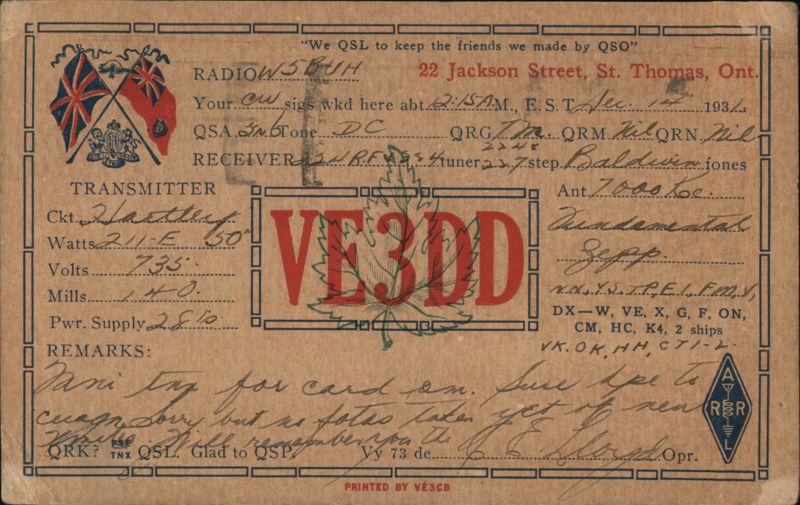 "We QSL to keep the friends we made by QSO"
RADIO W5BUH 22 Jackson Street, St. Thomas, Ont.
Your CW sigs wkd here abt. 2:15 A.M., E.S.T. Dec. 14 1931.
QSA 5 Tone DC QRG QRM Nil QRN Nil
RECEIVER tuner step Baldwin fones
TRANSMITTER
Ant. 7000 Kc.
Ckt. Hartley
Fundamental
Watts 211-E 50
Zepp.
Volts 735
Mills 140
Pwr. Supply 2810
VE3DD
NN, YS, TP, EI, FM, V,
DX—W, VE, X, G, F, ON,
CM, HC, K4, 2 ships
VK, OK, HH, CT1-2
REMARKS:
Mni tnx for card om. Suse hpe to
cuagn. Sorry but no fotos taken yet of new
Will remember you
QRK? PSE TNX QSL. Glad to QSP. Vy 73 de Lloyd Opr.
A
R R
L
PRINTED BY VE3CB